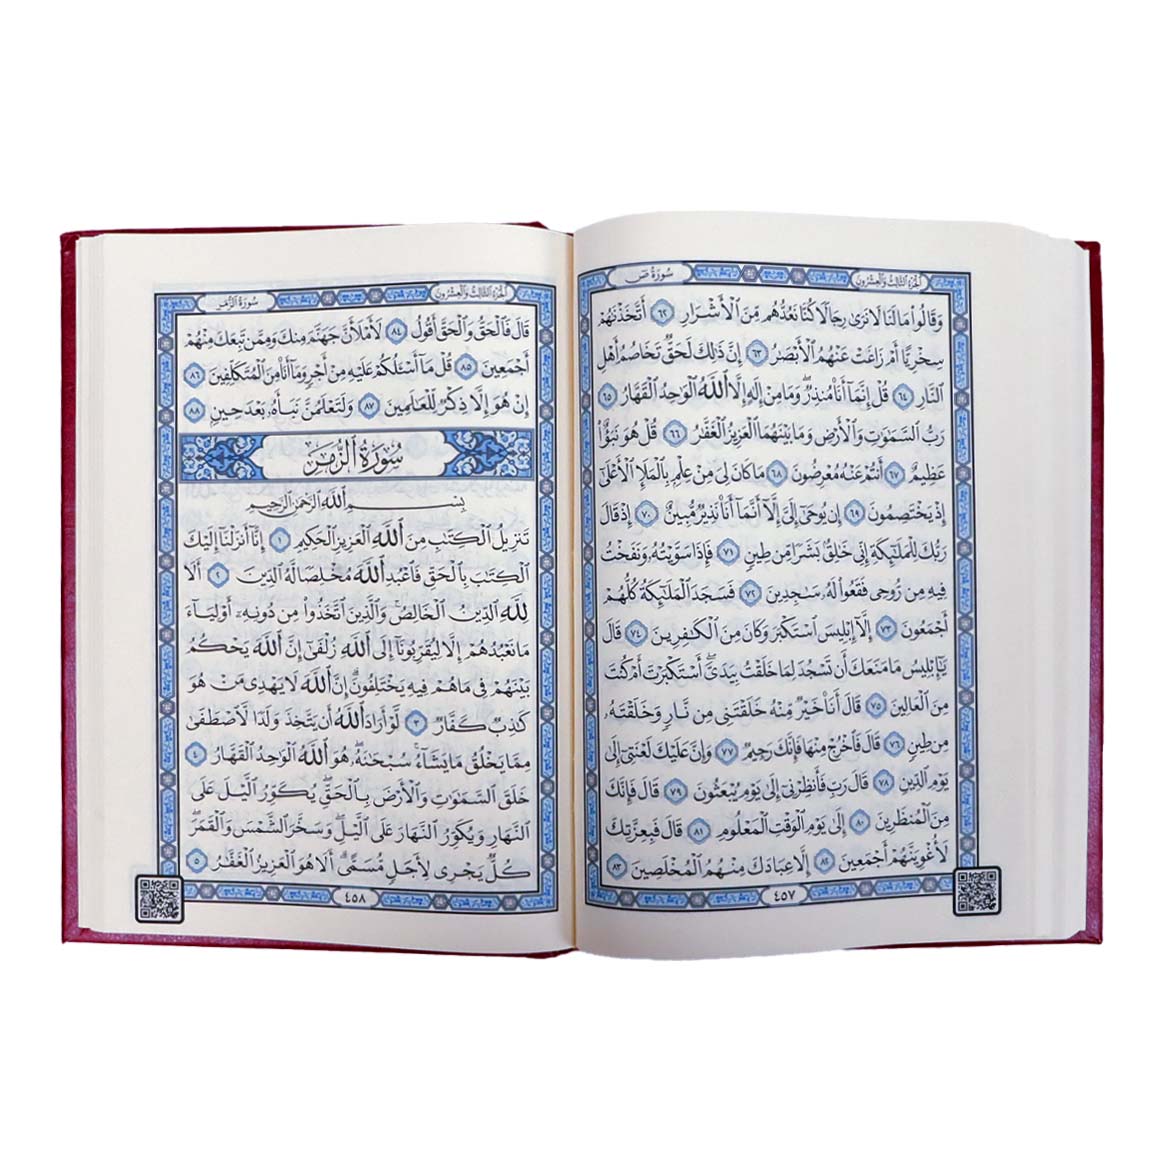 سُورَةُ صٓ
الجُزْءُ الثَّالِثُ وَالعِشْرُونَ
وَقَالُوا۟ مَا لَنَا لَا نَرَىٰ رِجَالًا كُنَّا نَعُدُّهُم مِّنَ ٱلْأَشْرَارِ ٦٢ أَتَّخَذْنَٰهُمْ
سِخْرِيًّا أَمْ زَاغَتْ عَنْهُمُ ٱلْأَبْصَٰرُ ٦٣ إِنَّ ذَٰلِكَ لَحَقٌّ تَخَاصُمُ أَهْلِ
ٱلنَّارِ ٦٤ قُلْ إِنَّمَآ أَنَا۠ مُنذِرٌ ۖ وَمَا مِنْ إِلَٰهٍ إِلَّا ٱللَّهُ ٱلْوَٰحِدُ ٱلْقَهَّارُ ٦٥
رَبُّ ٱلسَّمَٰوَٰتِ وَٱلْأَرْضِ وَمَا بَيْنَهُمَا ٱلْعَزِيزُ ٱلْغَفَّٰرُ ٦٦ قُلْ هُوَ نَبَؤٌا۟
عَظِيمٌ ٦٧ أَنتُمْ عَنْهُ مُعْرِضُونَ ٦٨ مَا كَانَ لِىَ مِنْ عِلْمٍۭ بِٱلْمَلَإِ ٱلْأَعْلَىٰٓ
إِذْ يَخْتَصِمُونَ ٦٩ إِن يُوحَىٰٓ إِلَىَّ إِلَّآ أَنَّمَآ أَنَا۠ نَذِيرٌ مُّبِينٌ ٧٠ إِذْ قَالَ
رَبُّكَ لِلْمَلَٰٓئِكَةِ إِنِّى خَٰلِقٌۢ بَشَرًا مِّن طِينٍ ٧١ فَإِذَا سَوَّيْتُهُۥ وَنَفَخْتُ
فِيهِ مِن رُّوحِى فَقَعُوا۟ لَهُۥ سَٰجِدِينَ ٧٢ فَسَجَدَ ٱلْمَلَٰٓئِكَةُ كُلُّهُمْ
أَجْمَعُونَ ٧٣ إِلَّآ إِبْلِيسَ ٱسْتَكْبَرَ وَكَانَ مِنَ ٱلْكَٰفِرِينَ ٧٤ قَالَ
يَٰٓإِبْلِيسُ مَا مَنَعَكَ أَن تَسْجُدَ لِمَا خَلَقْتُ بِيَدَىَّ ۖ أَسْتَكْبَرْتَ أَمْ كُنتَ
مِنَ ٱلْعَالِينَ ٧٥ قَالَ أَنَا۠ خَيْرٌ مِّنْهُ خَلَقْتَنِى مِن نَّارٍ وَخَلَقْتَهُۥ
مِن طِينٍ ٧٦ قَالَ فَٱخْرُجْ مِنْهَا فَإِنَّكَ رَجِيمٌ ٧٧ وَإِنَّ عَلَيْكَ لَعْنَتِىٓ إِلَىٰ
يَوْمِ ٱلدِّينِ ٧٨ قَالَ رَبِّ فَأَنظِرْنِىٓ إِلَىٰ يَوْمِ يُبْعَثُونَ ٧٩ قَالَ فَإِنَّكَ
مِنَ ٱلْمُنظَرِينَ ٨٠ إِلَىٰ يَوْمِ ٱلْوَقْتِ ٱلْمَعْلُومِ ٨١ قَالَ فَبِعِزَّتِكَ
لَأُغْوِيَنَّهُمْ أَجْمَعِينَ ٨٢ إِلَّا عِبَادَكَ مِنْهُمُ ٱلْمُخْلَصِينَ ٨٣
٤٥٧
الجُزْءُ الثَّالِثُ وَالعِشْرُونَ
سُورَةُ الزُّمَرِ
قَالَ فَٱلْحَقُّ وَٱلْحَقَّ أَقُولُ ٨٤ لَأَمْلَأَنَّ جَهَنَّمَ مِنكَ وَمِمَّن تَبِعَكَ مِنْهُمْ
أَجْمَعِينَ ٨٥ قُلْ مَآ أَسْـَٔلُكُمْ عَلَيْهِ مِنْ أَجْرٍ وَمَآ أَنَا۠ مِنَ ٱلْمُتَكَلِّفِينَ ٨٦
إِنْ هُوَ إِلَّا ذِكْرٌ لِّلْعَٰلَمِينَ ٨٧ وَلَتَعْلَمُنَّ نَبَأَهُۥ بَعْدَ حِينٍۭ ٨٨
سُورَةُ الزُّمَرِ
بِسْمِ ٱللَّهِ ٱلرَّحْمَٰنِ ٱلرَّحِيمِ
تَنزِيلُ ٱلْكِتَٰبِ مِنَ ٱللَّهِ ٱلْعَزِيزِ ٱلْحَكِيمِ ١ إِنَّآ أَنزَلْنَآ إِلَيْكَ
ٱلْكِتَٰبَ بِٱلْحَقِّ فَٱعْبُدِ ٱللَّهَ مُخْلِصًا لَّهُ ٱلدِّينَ ٢ أَلَا
لِلَّهِ ٱلدِّينُ ٱلْخَالِصُ ۚ وَٱلَّذِينَ ٱتَّخَذُوا۟ مِن دُونِهِۦٓ أَوْلِيَآءَ
مَا نَعْبُدُهُمْ إِلَّا لِيُقَرِّبُونَآ إِلَى ٱللَّهِ زُلْفَىٰٓ إِنَّ ٱللَّهَ يَحْكُمُ
بَيْنَهُمْ فِى مَا هُمْ فِيهِ يَخْتَلِفُونَ ۗ إِنَّ ٱللَّهَ لَا يَهْدِى مَنْ هُوَ
كَٰذِبٌ كَفَّارٌ ٣ لَّوْ أَرَادَ ٱللَّهُ أَن يَتَّخِذَ وَلَدًا لَّٱصْطَفَىٰ
مِمَّا يَخْلُقُ مَا يَشَآءُ ۚ سُبْحَٰنَهُۥ ۖ هُوَ ٱللَّهُ ٱلْوَٰحِدُ ٱلْقَهَّارُ ٤
خَلَقَ ٱلسَّمَٰوَٰتِ وَٱلْأَرْضَ بِٱلْحَقِّ ۖ يُكَوِّرُ ٱلَّيْلَ عَلَى
ٱلنَّهَارِ وَيُكَوِّرُ ٱلنَّهَارَ عَلَى ٱلَّيْلِ ۖ وَسَخَّرَ ٱلشَّمْسَ وَٱلْقَمَرَ ۖ
كُلٌّ يَجْرِى لِأَجَلٍ مُّسَمًّى ۗ أَلَا هُوَ ٱلْعَزِيزُ ٱلْغَفَّٰرُ ٥
٤٥٨